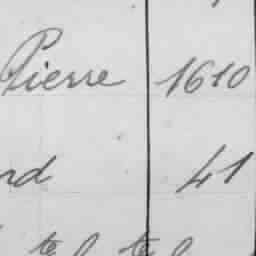 Pierre 1610
nd 41